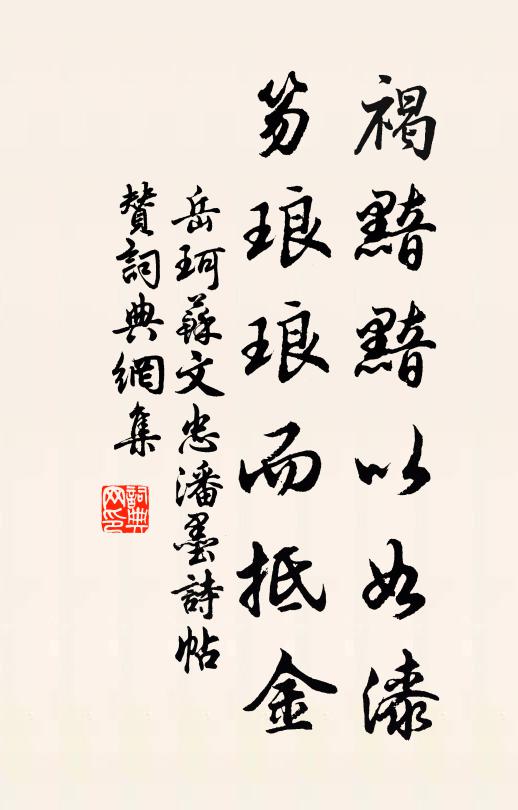 褐黯黯以如漆
笏琅琅而抵金
岳珂蘇文忠潘墨詩帖
贊詞典網集
詞典
网印